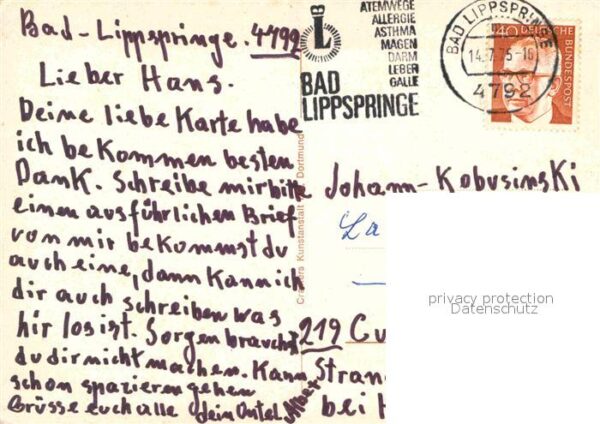 Bad-Lippspringe. 4792
Lieber Hans.
Deine liebe Karte habe
ich bekommen besten
Dank. Schreibe mir bitte
einen ausführlichen Brief
von mir bekommst du
auch eine, dann kann ich
dir auch schreiben was
hir los ist. Sorgen brauchst
du dir nicht machen. Kann
schon spazieren gehen
Grüsse euch alle dein Onkel Albert
Crüwers Kunstanstalt Dortmund
ATEMWEGE
ALLERGIE
ASTHMA
MAGEN
DARM
LEBER
GALLE
L
BAD
LIPPSPRINGE
BAD LIPPSPRINGE
14.7.75-16
4792
40 DEUTSCHE BUNDESPOST
Johann-Kobusinski
La
219 Cu
Stran
bei H
privacy protection
Datenschutz